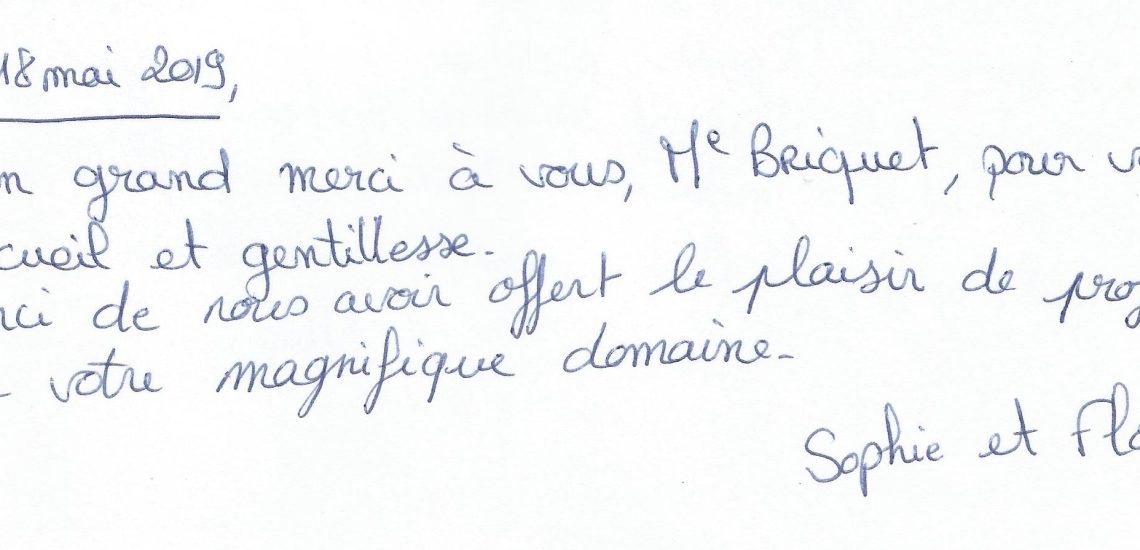 18 mai 2019,
n grand merci à vous, Me Briquet, pour v
cueil et gentillesse.
rci de nous avoir offert le plaisir de pro
votre magnifique domaine.
Sophie et Flo